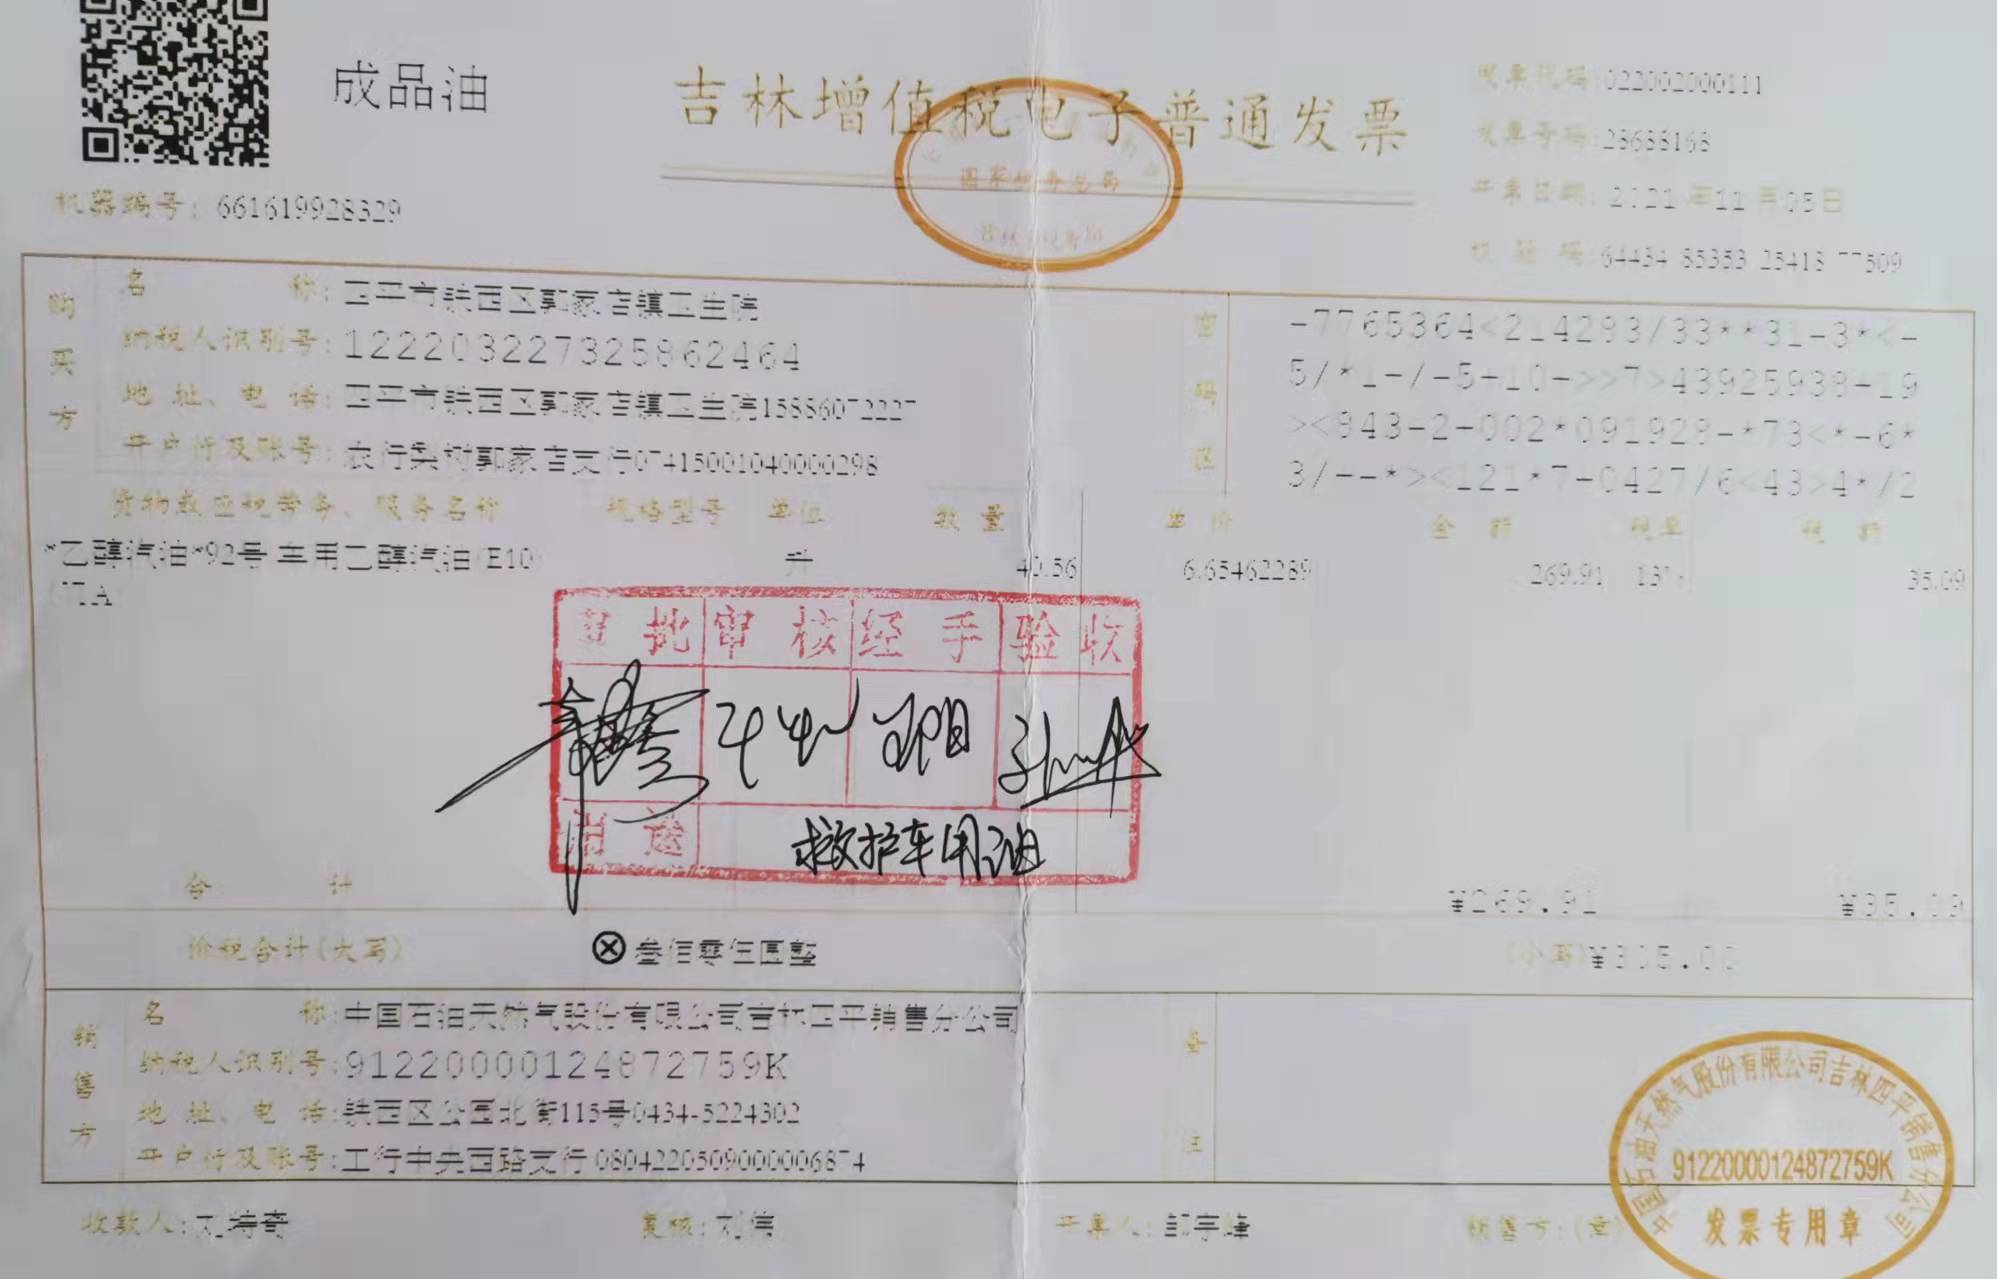 成品油
吉林增值税电子普通发票
发票代码:022002000111
发票号码:28688168
开票日期:2021年11月05日
校验码:64434 85353 25413 77509
机器编号:661619928329
国家税务总局
购买方
名称:四平市铁西区郭家店镇卫生院
纳税人识别号:122203227325862464
地址、电话:四平市铁西区郭家店镇卫生院15886072227
开户行及账号:农行梨树郭家店支行07415001040000298
密码区
-7765364<214293/33**31-3*<-
5/*1-/-5+10->>7>43925938+19
><843-2+002*091928-*73<*-6*
3/+--*><121*7+0427/6<43>4*/2
货物或应税劳务、服务名称 规格型号 单位 数量 单价 金额 税率 税额
*乙醇汽油*92号 车用乙醇汽油(E10) 升 40.56 6.65462289 269.91 13% 35.09
(VIA
审批 审核 经手 验收
用途 救护车用油
合计 ¥269.91 ¥35.09
价税合计(大写) ⊗叁佰零伍圆整 (小写)¥305.00
销售方
名称:中国石油天然气股份有限公司吉林四平销售分公司
纳税人识别号:91220000124872759K
地址、电话:铁西区公园北街115号0434-5224302
开户行及账号:工行中央西路支行0804220509000006874
备注
收款人:刘琦奇 复核:刘伟 开票人:邹宇峰 销售方:(章)
中国石油天然气股份有限公司吉林四平销售分公司
91220000124872759K
发票专用章